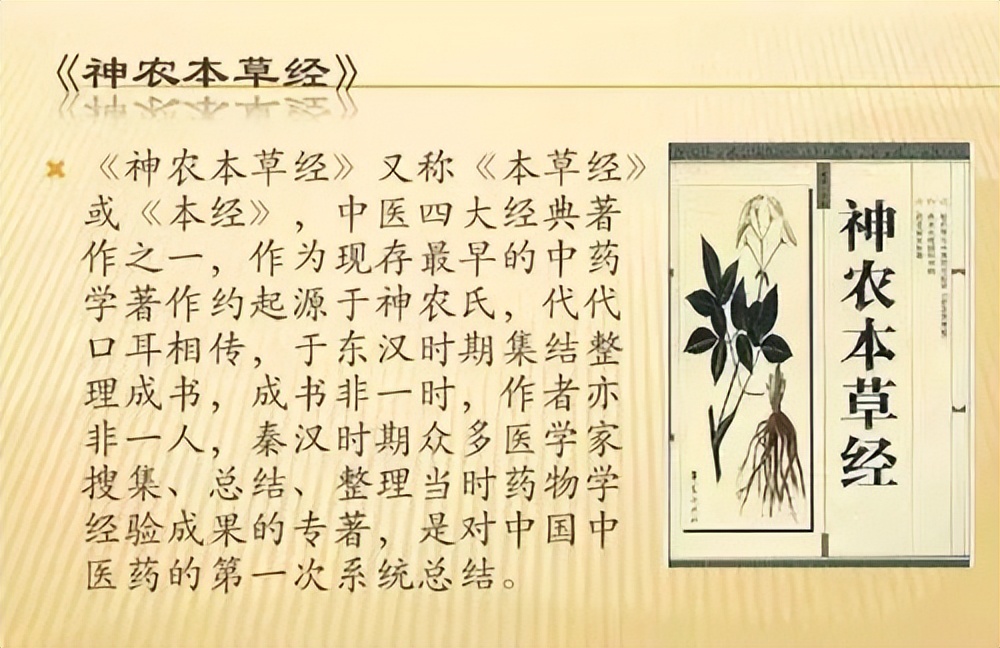 《神农本草经》
《神农本草经》又称《本草经》
或《本经》，中医四大经典著
作之一，作为现存最早的中药
学著作约起源于神农氏，代代
口耳相传，于东汉时期集结整
理成书，成书非一时，作者亦
非一人，秦汉时期众多医学家
搜集、总结、整理当时药物学
经验成果的专著，是对中国中
医药的第一次系统总结。
神农本草经